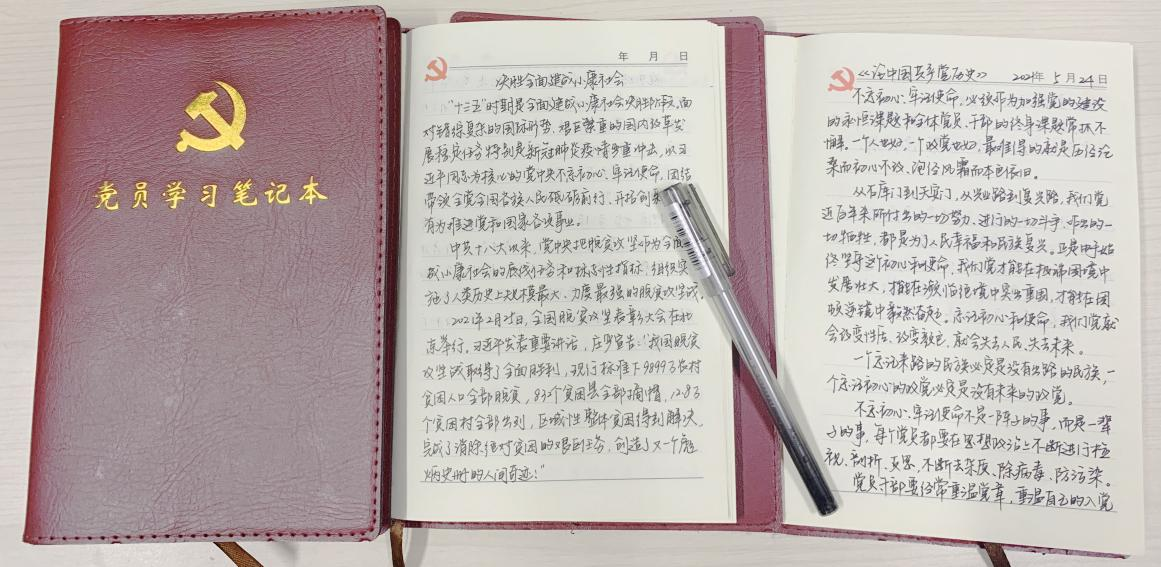 党员学习笔记本
年 月 日
决胜全面建成小康社会
"十三五"时期是全面建成小康社会决胜阶段,面
对错综复杂的国际形势、艰巨繁重的国内改革发
展稳定任务特别是新冠肺炎疫情严重冲击,以习
近平同志为核心的党中央不忘初心、牢记使命,团结
带领全党全国各族人民砥砺前行、开拓创
有为推进党和国家各项事业。
党十八大以来,党中央把脱贫攻坚作为全面
成小康社会的底线任务和标志性指标,组织实
施了人类历史上规模最大、力度最强的脱贫攻坚战。
2021年2月25日,全国脱贫攻坚表彰大会在北
京举行。习近平发表重要讲话,庄严宣告:"我国脱贫
攻坚战取得了全面胜利,现行标准下9899万农村
贫困人口全部脱贫,832个贫困县全部摘帽,12.8万
个贫困村全部出列,区域性整体贫困得到解决,
完成了消除绝对贫困的艰巨任务,创造了又一个彪
炳史册的人间奇迹!"
《论中国共产党历史》 2021年 5月24日
不忘初心、牢记使命,必须作为加强党的建设
的永恒课题和全体党员、干部的终身课题常抓不
懈。一个人也好,一个政党也好,最难得的就是历经沧
桑而初心不改、饱经风霜而本色依旧。
从石库门到天安门,从兴业路到复兴路,我们党
近百年来所付出的一切努力、进行的一切斗争、作出的一
切牺牲,都是为了人民幸福和民族复兴。正是由于始
终坚守这个初心和使命,我们党才能在极端困境中
发展壮大,才能在濒临绝境中突出重围,才能在困
顿逆境中毅然奋起。忘记初心和使命,我们党就
会改变性质、改变颜色,就会失去人民、失去未来。
一个忘记来路的民族必定是没有出路的民族,一
个忘记初心的政党必定是没有未来的政党。
不忘初心、牢记使命不是一阵子的事,而是一辈
子的事,每个党员都要在思想政治上不断进行检
视、剖析、反思,不断去杂质、除病毒、防污染。
党员干部要经常重温党章,重温自己的入党